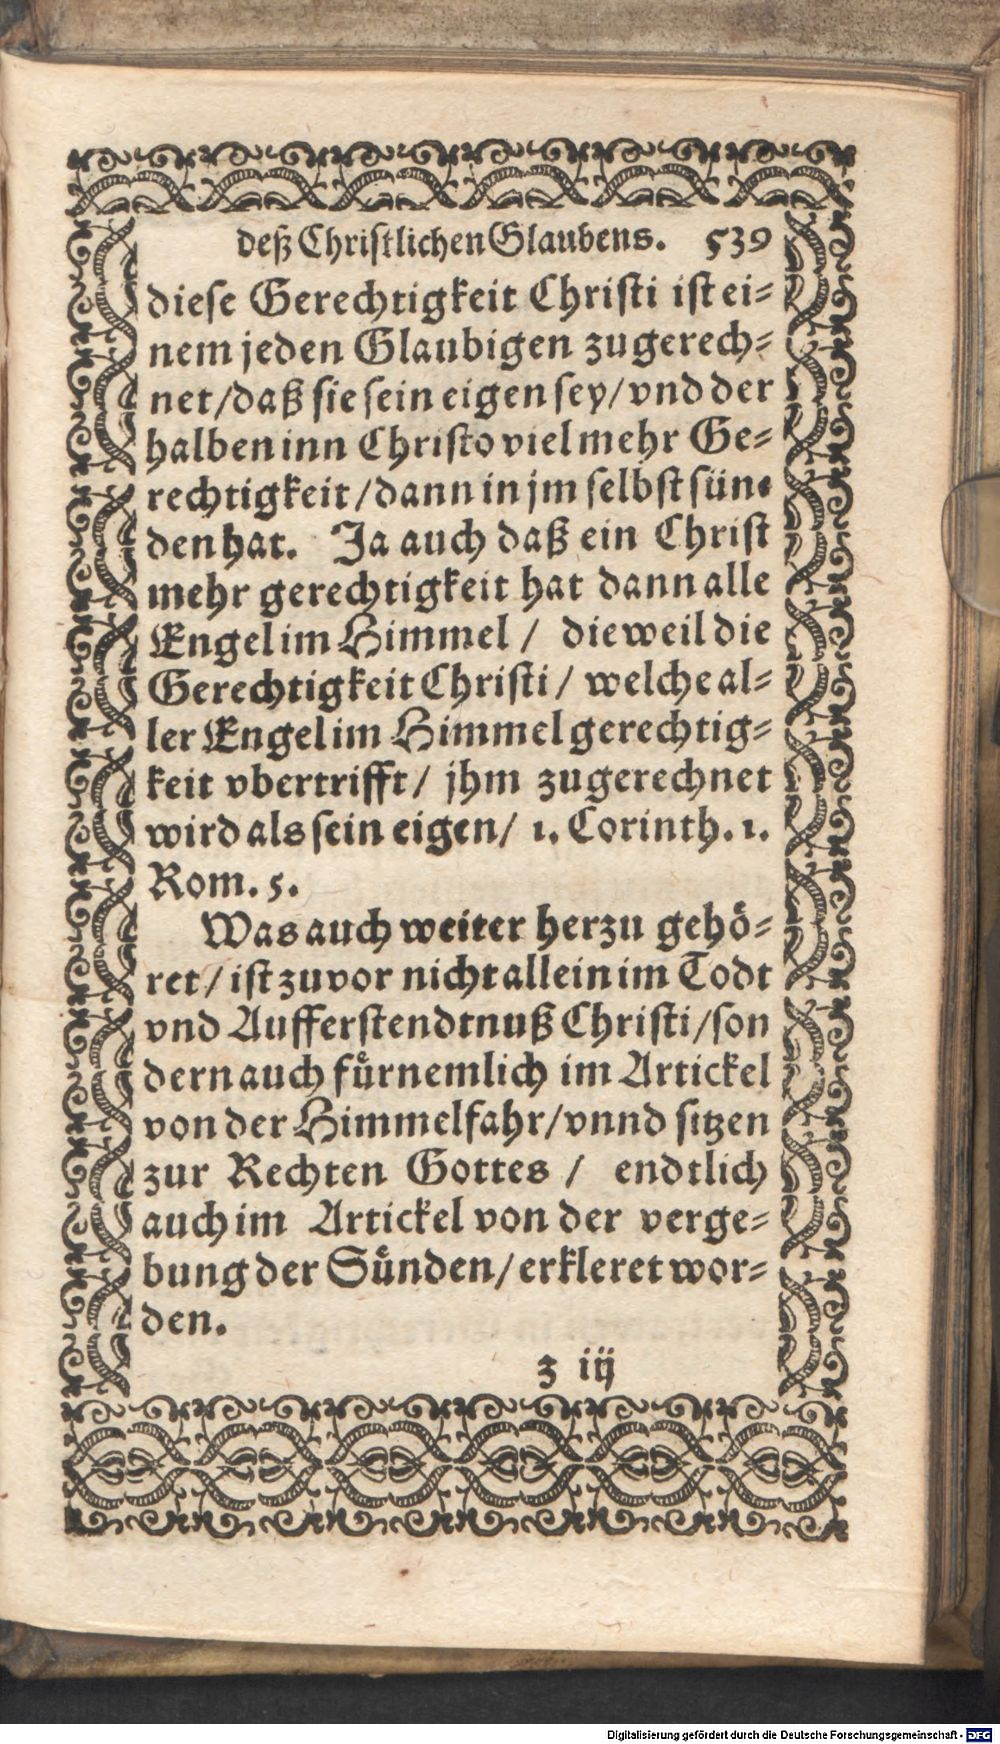 deß Christlichen Glaubens. 539
diese Gerechtigkeit Christi ist ei=
nem jeden Glaubigen zugerech=
net/daß sie sein eigen sey/vnd der
halben inn Christo viel mehr Ge=
rechtigkeit/dann in jm selbst sün=
den hat. Ja auch daß ein Christ
mehr gerechtigkeit hat dann alle
Engel im Himmel / die weil die
Gerechtigkeit Christi/ welche al=
ler Engel im Himmel gerechtig=
keit vbertrifft/ jhm zugerechnet
wird als sein eigen/ 1. Corinth. 1.
Rom. 5.
Was auch weiter herzu gehö=
ret/ ist zuvor nicht allein im Todt
vnd Aufferstendtnuß Christi/son
dern auch fürnemlich im Artickel
von der Himmelfahr/vnnd sitzen
zur Rechten Gottes / endtlich
auch im Artickel von der verge=
bung der Sünden/erkleret wor=
den.
z iij
Digitalisierung gefördert durch die Deutsche Forschungsgemeinschaft - DFG